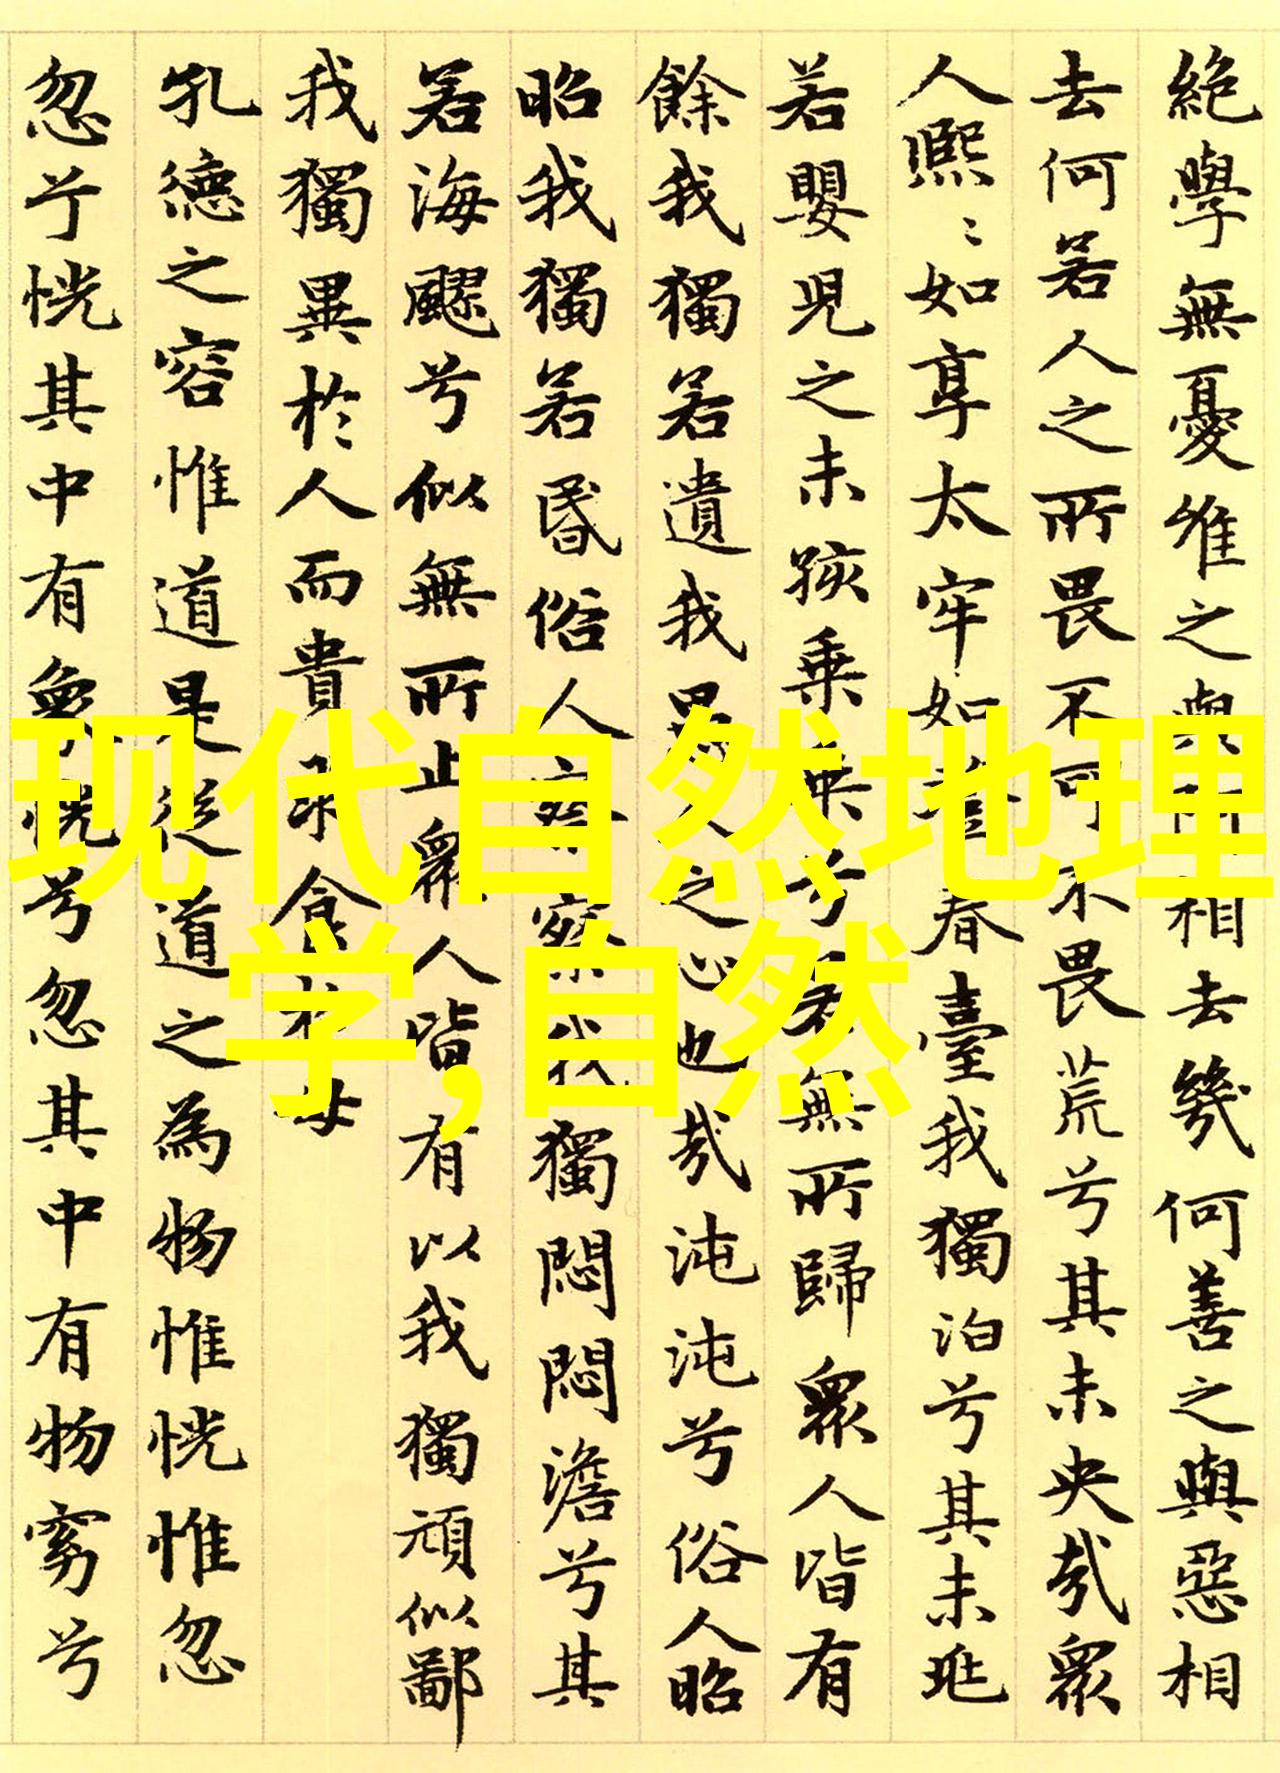 絶學無憂唯之與阿相去幾何善之與惡相
去何若人之所畏不可不畏荒兮其未央哉眾
人熙〻如享太牢如登春臺我獨泊兮其未兆
若嬰兒之未孩乗乗兮若無所歸眾人皆有
餘我獨若遺我愚人之心也哉沌沌兮俗人昭
昭我獨若昏俗人察察我獨悶悶澹兮其
若海飂兮似無所止眾人皆有以我獨頑似鄙
我獨異於人而貴求食於母
孔德之容惟道是從道之為物惟恍惟忽
忽兮恍其中有象恍兮忽其中有物窈兮
现代自然地理
学,自然